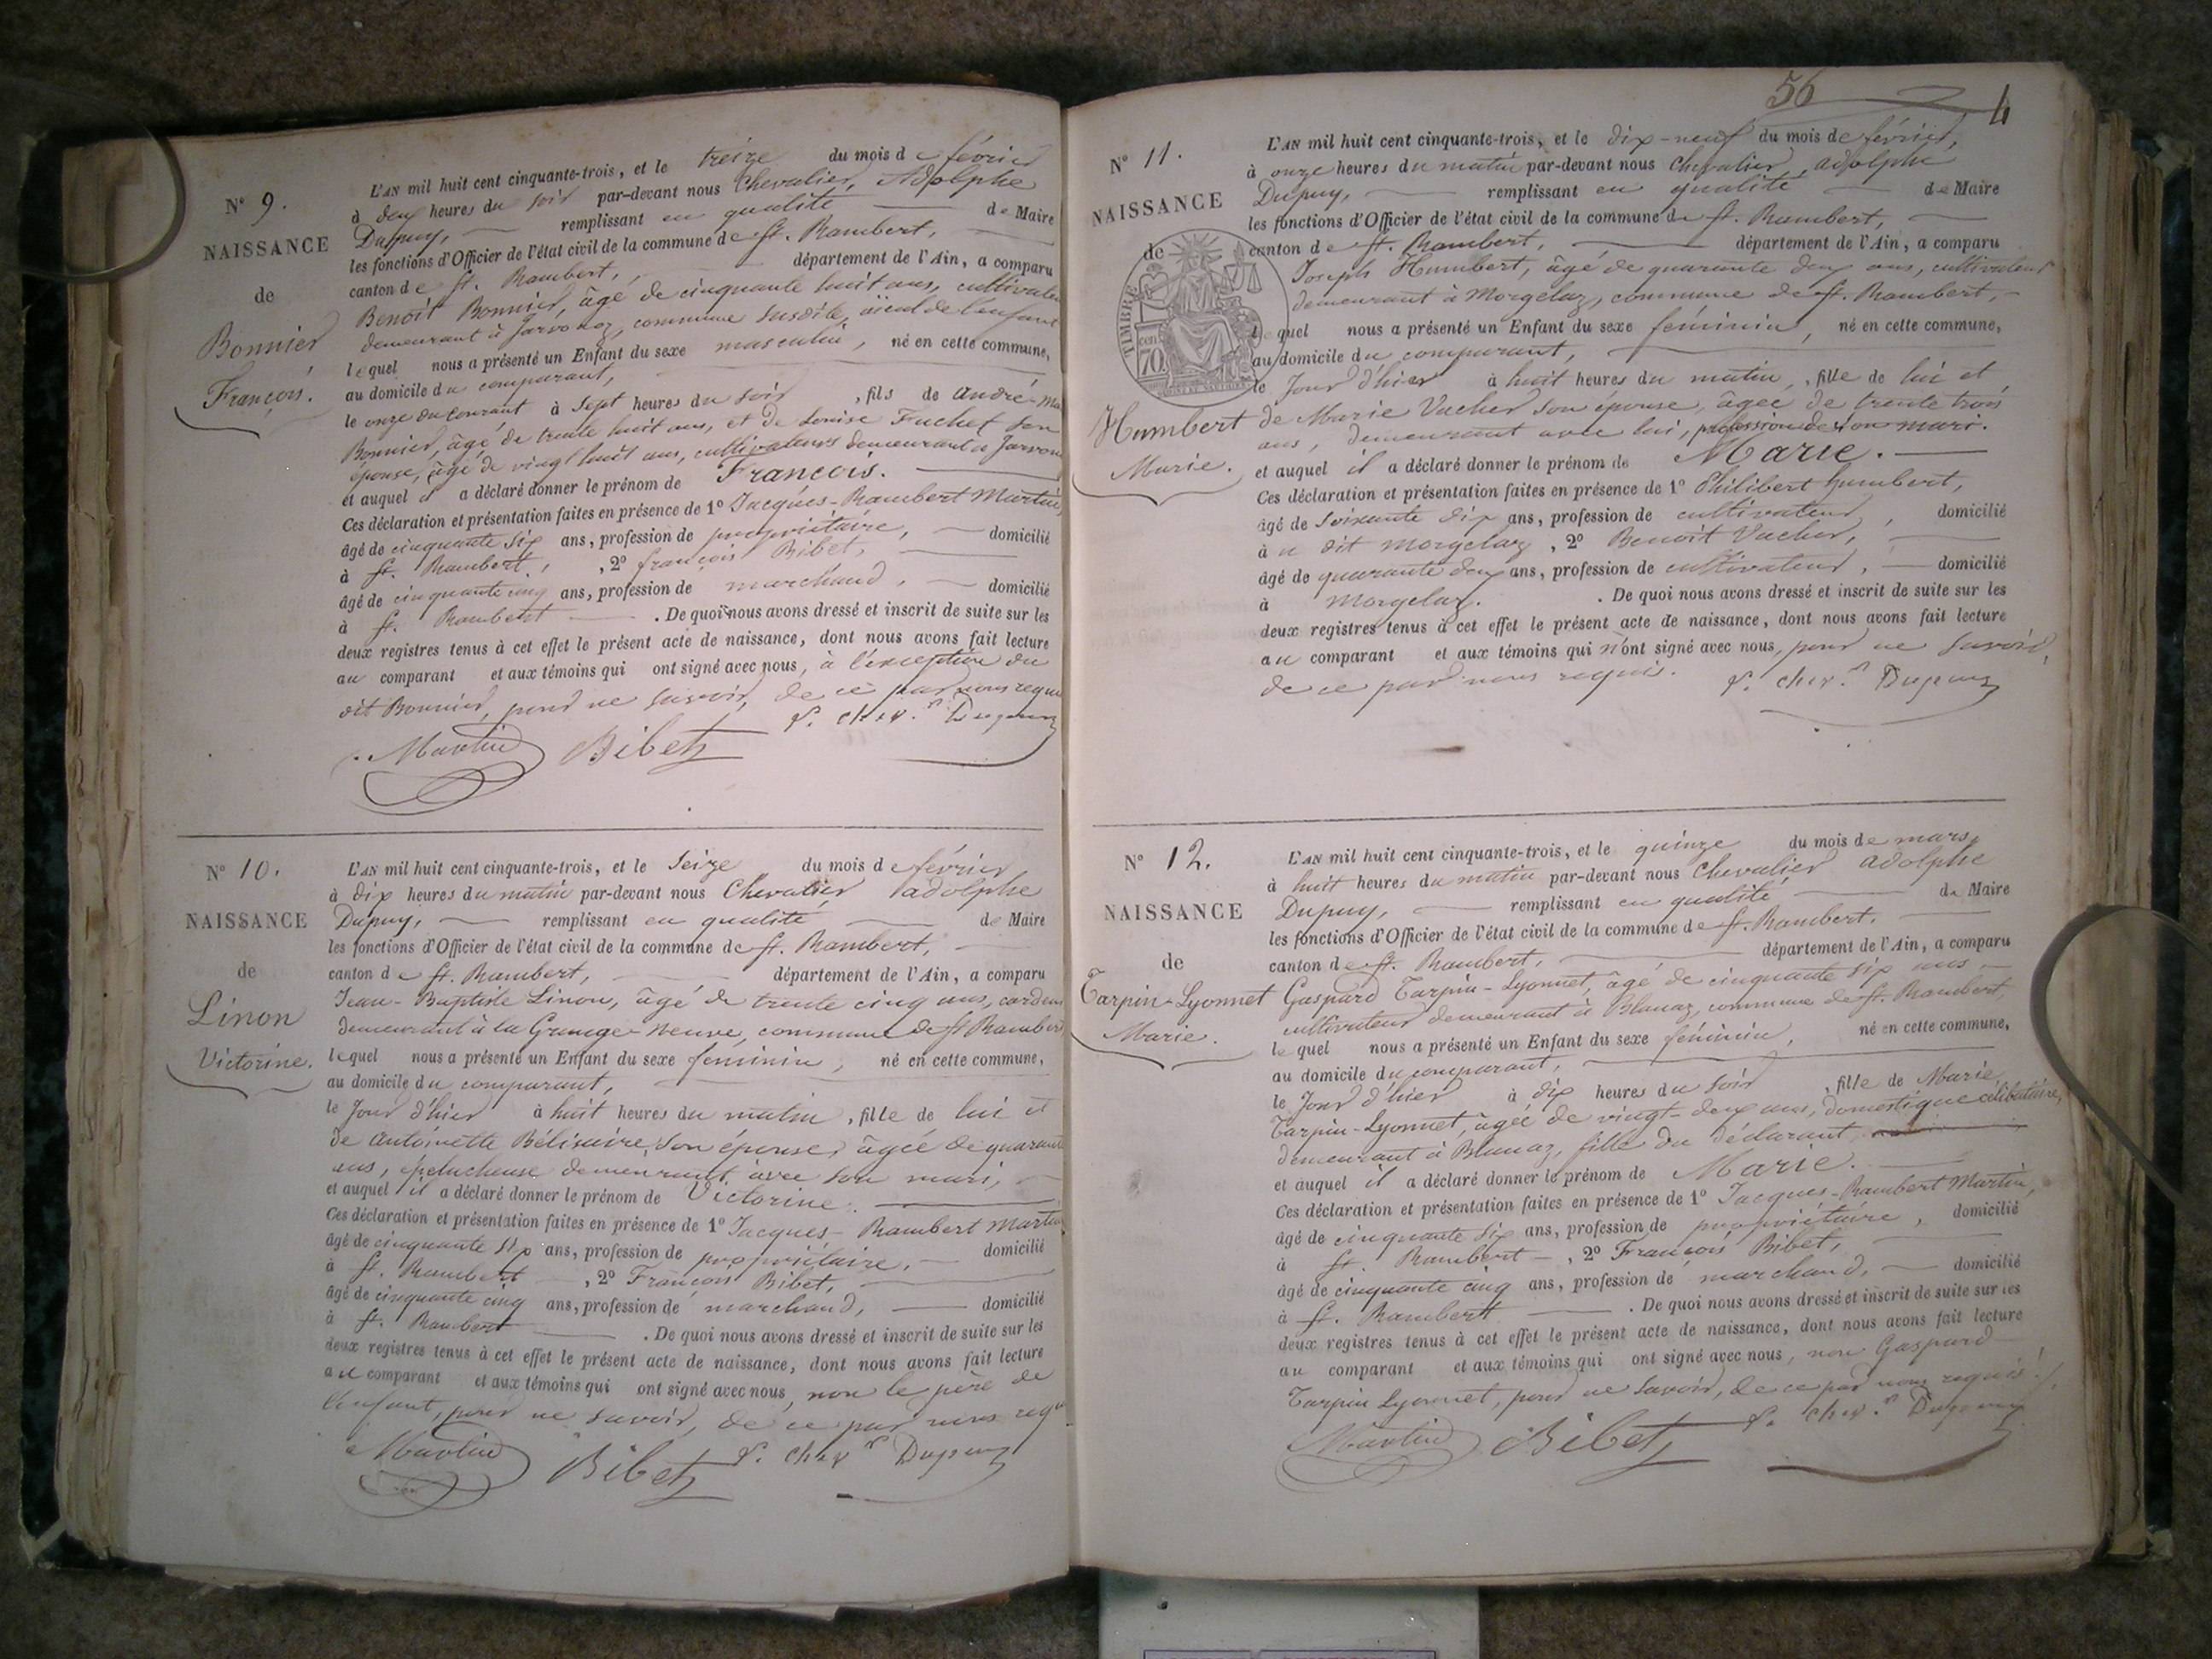 N° 9.
NAISSANCE
de
Bonnier
François.
L'AN mil huit cent cinquante-trois, et le treize du mois de février
à deux heures du soir par-devant nous Chevalier, Adolphe
Dupuy, remplissant en qualité de Maire
les fonctions d'Officier de l'état civil de la commune de St. Rambert,
canton de St. Rambert, département de l'Ain, a comparu
Benoit Bonnier, âgé de cinquante huit ans, cultivateur
demeurant à Javornoz, commune susdite, aïeul de l'enfant
lequel nous a présenté un Enfant du sexe masculin, né en cette commune,
au domicile du comparant,
le onze du courant à sept heures du soir, fils de André-
Bonnier, âgé de trente huit ans, et de Louise Fuchet son
épouse, âgé de vingt huit ans, cultivateurs demeurant à
et auquel il a déclaré donner le prénom de François.
Ces déclaration et présentation faites en présence de 1° Jacques-Rambert Martin,
âgé de cinquante six ans, profession de propriétaire, domicilié
à St. Rambert, , 2° françois Bibet,
âgé de cinquante cinq ans, profession de marchand, domicilié
à St. Rambert . De quoi nous avons dressé et inscrit de suite sur les
deux registres tenus à cet effet le présent acte de naissance, dont nous avons fait lecture
au comparant et aux témoins qui ont signé avec nous, à l'exception du
dit Bonnier, pour ne savoir, de ce par nous requis
Martin Bibet Chev.r Dupuy
N° 10.
NAISSANCE
de
Linon
Victorine.
L'AN mil huit cent cinquante-trois, et le seize du mois de février
à dix heures du matin par-devant nous Chevalier adolphe
Dupuy, remplissant en qualité de Maire
les fonctions d'Officier de l'état civil de la commune de St. Rambert,
canton de St. Rambert, département de l'Ain, a comparu
Jean-Baptiste Linon, âgé de trente cinq ans, cardeur
demeurant à la Grange-Neuve, commune de St Rambert
lequel nous a présenté un Enfant du sexe féminin, né en cette commune,
au domicile du comparant,
le Jour d'hier à huit heures du matin, fille de lui et
de Antoinette Bélisaire, son épouse, âgée de quarante
ans, éplucheuse demeurant avec son mari,
et auquel il a déclaré donner le prénom de Victorine.
Ces déclaration et présentation faites en présence de 1° Jacques-Rambert Martin
âgé de cinquante six ans, profession de propriétaire, domicilié
à St. Rambert , 2° François Bibet,
âgé de cinquante cinq ans, profession de marchand, domicilié
à St. Rambert . De quoi nous avons dressé et inscrit de suite sur les
deux registres tenus à cet effet le présent acte de naissance, dont nous avons fait lecture
au comparant et aux témoins qui ont signé avec nous, non le père de
l'enfant, pour ne savoir, de ce par nous requis
Martin Bibet Chevr Dupuy
56 4
N° 11.
NAISSANCE
de
TIMBRE
70
Humbert
Marie.
L'AN mil huit cent cinquante-trois, et le dix-neuf du mois de février,
à onze heures du matin par-devant nous Chevalier, adolphe
Dupuy, remplissant en qualité de Maire
les fonctions d'Officier de l'état civil de la commune de St. Rambert,
canton de St. Rambert, département de l'Ain, a comparu
Joseph Humbert, âgé de quarante deux ans, cultivateur
demeurant à Morgelaz, commune de St. Rambert,
lequel nous a présenté un Enfant du sexe féminin, né en cette commune,
au domicile du comparant,
le Jour d'hier à huit heures du matin, fille de lui et
de Marie Vacher son épouse, âgée de trente trois
ans, demeurant avec lui, profession de son mari.
et auquel il a déclaré donner le prénom de Marie.
Ces déclaration et présentation faites en présence de 1° Philibert humbert,
âgé de soixante dix ans, profession de cultivateur, domicilié
à u dit Morgelaz, 2° Benoit Vacher,
âgé de quarante deux ans, profession de cultivateur, domicilié
à Morgelaz. . De quoi nous avons dressé et inscrit de suite sur les
deux registres tenus à cet effet le présent acte de naissance, dont nous avons fait lecture
au comparant et aux témoins qui n'ont signé avec nous, pour ne savoir,
de ce par nous requis. Chev.r Dupuy
N° 12.
NAISSANCE
de
Tarpin-Lyonnet
Marie.
L'AN mil huit cent cinquante-trois, et le quinze du mois de mars,
à huit heures du matin par-devant nous Chevalier adolphe
Dupuy, remplissant en qualité de Maire
les fonctions d'Officier de l'état civil de la commune de St. Rambert,
canton de St. Rambert, département de l'Ain, a comparu
Gaspard Tarpin-Lyonnet, âgé de cinquante six ans
cultivateur demeurant à Blanaz, commune de St. Rambert,
lequel nous a présenté un Enfant du sexe féminin, né en cette commune,
au domicile du comparant,
le Jour d'hier à dix heures du soir, fille de Marie
Tarpin-Lyonnet, âgée de vingt-deux ans, domestique célibataire,
demeurant à Blanaz, fille du déclarant
et auquel il a déclaré donner le prénom de Marie.
Ces déclaration et présentation faites en présence de 1° Jacques-Rambert Martin,
âgé de cinquante six ans, profession de propriétaire, domicilié
à St. Rambert , 2° François Bibet,
âgé de cinquante cinq ans, profession de marchand, domicilié
à St. Rambert . De quoi nous avons dressé et inscrit de suite sur les
deux registres tenus à cet effet le présent acte de naissance, dont nous avons fait lecture
au comparant et aux témoins qui ont signé avec nous, non Gaspard
Tarpin Lyonnet, pour ne savoir, de ce par nous requis.
Martin Bibet Chev.r Dupuy